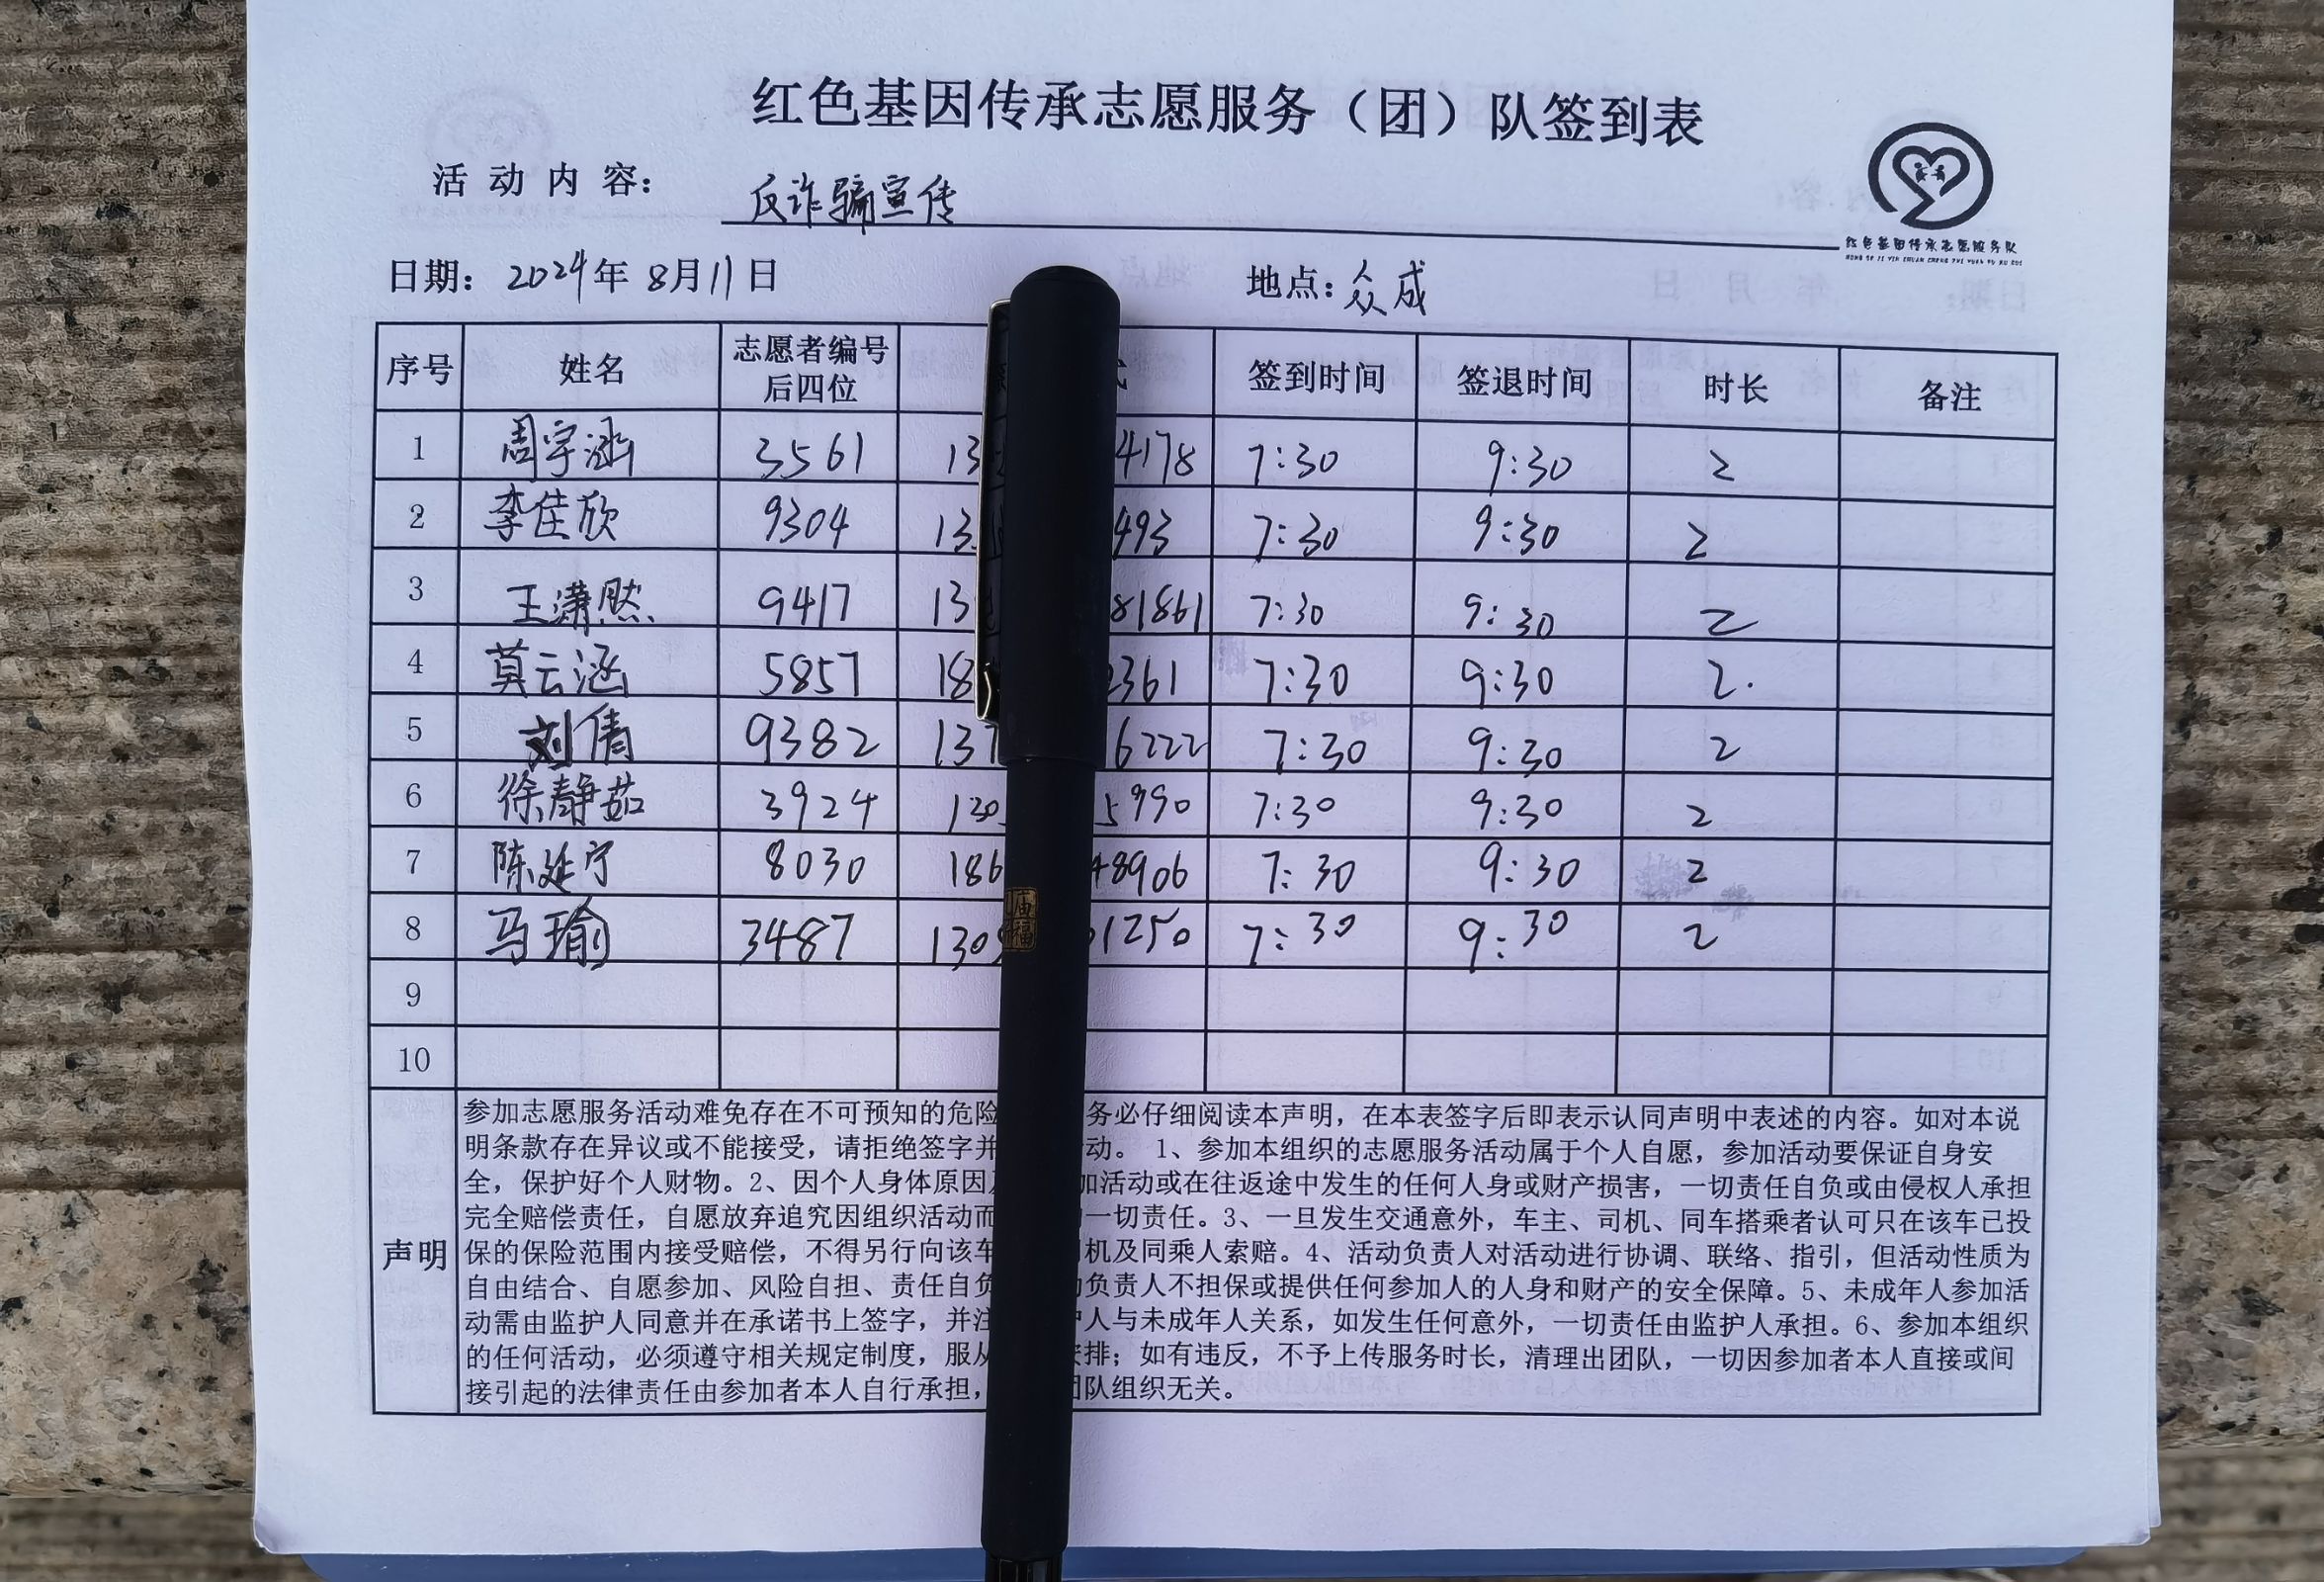 红色基因传承志愿服务（团）队签到表
活动内容： 反诈骗宣传
红色基因传承志愿服务队
HONG SE JI YIN CHUAN CHENG ZHI YUAN FU WU DUI
日期：2024年8月11日 地点：众成
序号 姓名 志愿者编号后四位 式 签到时间 签退时间 时长 备注
1 周宇涵 3561 13 4178 7:30 9:30 2
2 李佳欣 9304 13 493 7:30 9:30 2
3 王潇然 9417 13 81861 7:30 9:30 2
4 莫云涵 5857 18 2361 7:30 9:30 2.
5 刘倩 9382 137 6222 7:30 9:30 2
6 徐静茹 3924 130 5990 7:30 9:30 2
7 陈延宁 8030 186 48906 7:30 9:30 2
8 马瑜 3487 130 1250 7:30 9:30 2
9
10
声明
参加志愿服务活动难免存在不可预知的危险 务必仔细阅读本声明，在本表签字后即表示认同声明中表述的内容。如对本说
明条款存在异议或不能接受，请拒绝签字并 动。 1、参加本组织的志愿服务活动属于个人自愿，参加活动要保证自身安
全，保护好个人财物。2、因个人身体原因 加活动或在往返途中发生的任何人身或财产损害，一切责任自负或由侵权人承担
完全赔偿责任，自愿放弃追究因组织活动而 一切责任。3、一旦发生交通意外，车主、司机、同车搭乘者认可只在该车已投
保的保险范围内接受赔偿，不得另行向该车 机及同乘人索赔。4、活动负责人对活动进行协调、联络、指引，但活动性质为
自由结合、自愿参加、风险自担、责任自负 负责人不担保或提供任何参加人的人身和财产的安全保障。5、未成年人参加活
动需由监护人同意并在承诺书上签字，并注 人与未成年人关系，如发生任何意外，一切责任由监护人承担。6、参加本组织
的任何活动，必须遵守相关规定制度，服从 安排；如有违反，不予上传服务时长，清理出团队，一切因参加者本人直接或间
接引起的法律责任由参加者本人自行承担， 团队组织无关。